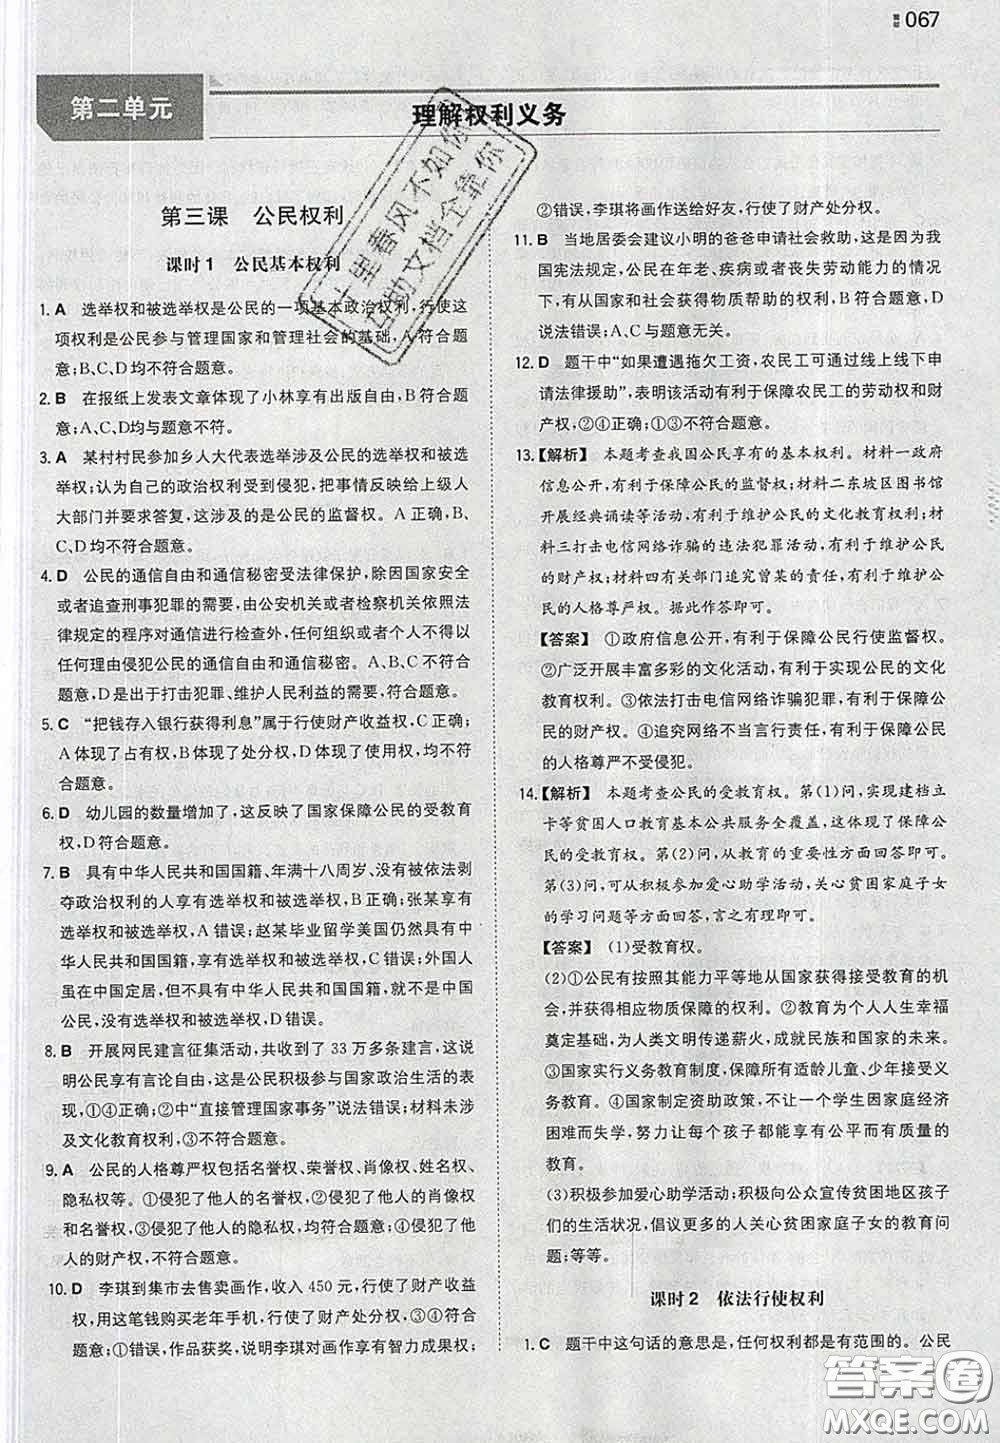 067
第二单元
理解权利义务
第三课 公民权利
课时1 公民基本权利
1. A 选举权和被选举权是公民的一项基本政治权利,行使这
项权利是公民参与管理国家和管理社会的基础,A符合题
意;B、C、D均不符合题意。
2. B 在报纸上发表文章体现了小林享有出版自由,B符合题
意;A、C、D均与题意不符。
3. A 某村村民参加乡人大代表选举涉及公民的选举权和被选
举权;认为自己的政治权利受到侵犯,把事情反映给上级人
大部门并要求答复,这涉及的是公民的监督权。A正确,B、
C、D均不符合题意。
4. D 公民的通信自由和通信秘密受法律保护,除因国家安全
或者追查刑事犯罪的需要,由公安机关或者检察机关依照法
律规定的程序对通信进行检查外,任何组织或者个人不得以
任何理由侵犯公民的通信自由和通信秘密。A、B、C不符合
题意,D是出于打击犯罪、维护人民利益的需要,符合题意。
5. C “把钱存入银行获得利息”属于行使财产收益权,C正确;
A体现了占有权,B体现了处分权,D体现了使用权,均不符
合题意。
6. D 幼儿园的数量增加了,这反映了国家保障公民的受教育
权,D符合题意。
7. B 具有中华人民共和国国籍、年满十八周岁、没被依法剥
夺政治权利的人享有选举权和被选举权,B正确;张某享有
选举权和被选举权,A错误;赵某毕业留学美国仍然具有中
华人民共和国国籍,享有选举权和被选举权,C错误;外国人
虽在中国定居,但没有中华人民共和国国籍,就不是中国
公民,没有选举权和被选举权,D错误。
8. B 开展网民建言征集活动,共收到了33万多条建言,这说
明公民享有言论自由,是公民积极参与国家政治生活的表
现,①④正确;②中“直接管理国家事务”说法错误;材料未涉
及文化教育权利,③不符合题意。
9. A 公民的人格尊严权包括名誉权、荣誉权、肖像权、姓名权、
隐私权等。①侵犯了他人的名誉权,②侵犯了他人的肖像权和
名誉权,③侵犯了他人的隐私权,均符合题意;④侵犯了
他人的财产权,不符合题意。
10. D 李琪到集市去售卖画作,收入450元,行使了财产收益
权,用这笔钱购买老年手机,行使了财产处分权,③④符合
题意;①错误,作品获奖,说明李琪对画作享有智力成果权;
②错误,李琪将画作送给好友,行使了财产处分权。
11. B 当地居委会建议小明的爸爸申请社会救助,这是因为我
国宪法规定,公民在年老、疾病或者丧失劳动能力的情况
下,有从国家和社会获得物质帮助的权利,B符合题意,D
说法错误;A、C与题意无关。
12. D 题干中“如果遭遇拖欠工资,农民工可通过线上线下申
请法律援助”,表明该活动有利于保障农民工的劳动权和财
产权,②④正确;①③不符合题意。
13.【解析】 本题考查我国公民享有的基本权利。材料一政府
信息公开,有利于保障公民的监督权;材料二东坡区图书馆
开展经典诵读等活动,有利于维护公民的文化教育权利;材
料三打击电信网络诈骗的违法犯罪活动,有利于维护公民
的财产权;材料四有关部门追究曾某的责任,有利于维护公
民的人格尊严权。据此作答即可。
【答案】 ①政府信息公开,有利于保障公民行使监督权。
②广泛开展丰富多彩的文化活动,有利于实现公民的文化
教育权利。③依法打击电信网络诈骗犯罪,有利于保障公
民的财产权。④追究网络不当言行责任,有利于保障公民
的人格尊严不受侵犯。
14.【解析】 本题考查公民的受教育权。第(1)问,实现建档立
卡等贫困人口教育基本公共服务全覆盖,这体现了保障公
民的受教育权。第(2)问,从教育的重要性方面回答即可。
第(3)问,可从积极参加爱心助学活动,关心贫困家庭子女
的学习问题等方面回答,言之有理即可。
【答案】 (1)受教育权。
(2)①公民有按照其能力平等地从国家获得接受教育的机
会,并获得相应物质保障的权利。②教育为个人人生幸福
奠定基础,为人类文明传递薪火,成就民族和国家的未来。
③国家实行义务教育制度,保障所有适龄儿童、少年接受义
务教育。④国家制定资助政策,不让一个学生因家庭经济
困难而失学,努力让每个孩子都能享有公平而有质量的
教育。
(3)积极参加爱心助学活动;积极向公众宣传贫困地区孩子
们的生活状况,倡议更多的人关心贫困家庭子女的教育问
题;等等。
课时2 依法行使权利
1. C 题干中这句话的意思是,任何权利都是有范围的。公民
十里春风不如你
互助文档全靠你
答案圈
MXQE.COM